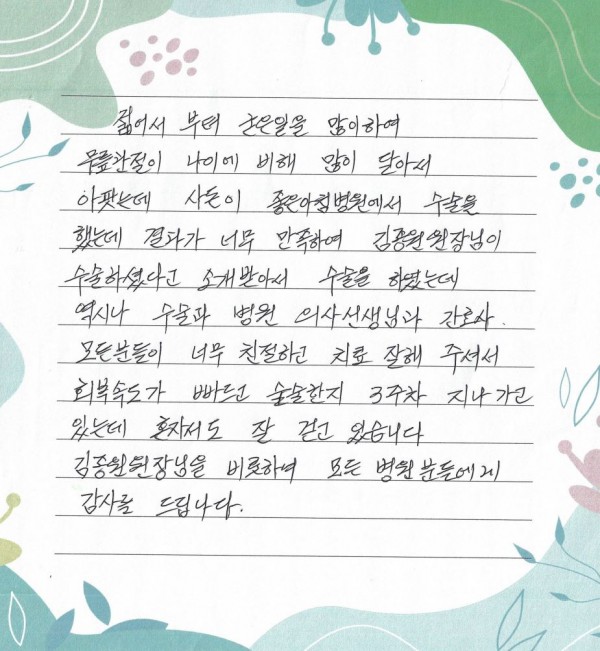 젊어서 부터 굳은일을 많이하여
무릎관절이 나이에 비해 많이 닳아서
아팠는데 사돈이 좋은아침병원에서 수술을
했는데 결과가 너무 만족하여 김종원원장님이
수술하셨다고 소개받아서 수술을 하였는데
역시나 수술과 병원 의사선생님과 간호사.
모든분들이 너무 친절하고 치료 잘해 주셔서
회복속도가 빠르고 술술한지 3주차 지나가고
있는데 혼자서도 잘 걷고 있습니다
김종원원장님을 비롯하여 모든 병원분들에게
감사를 드립니다.